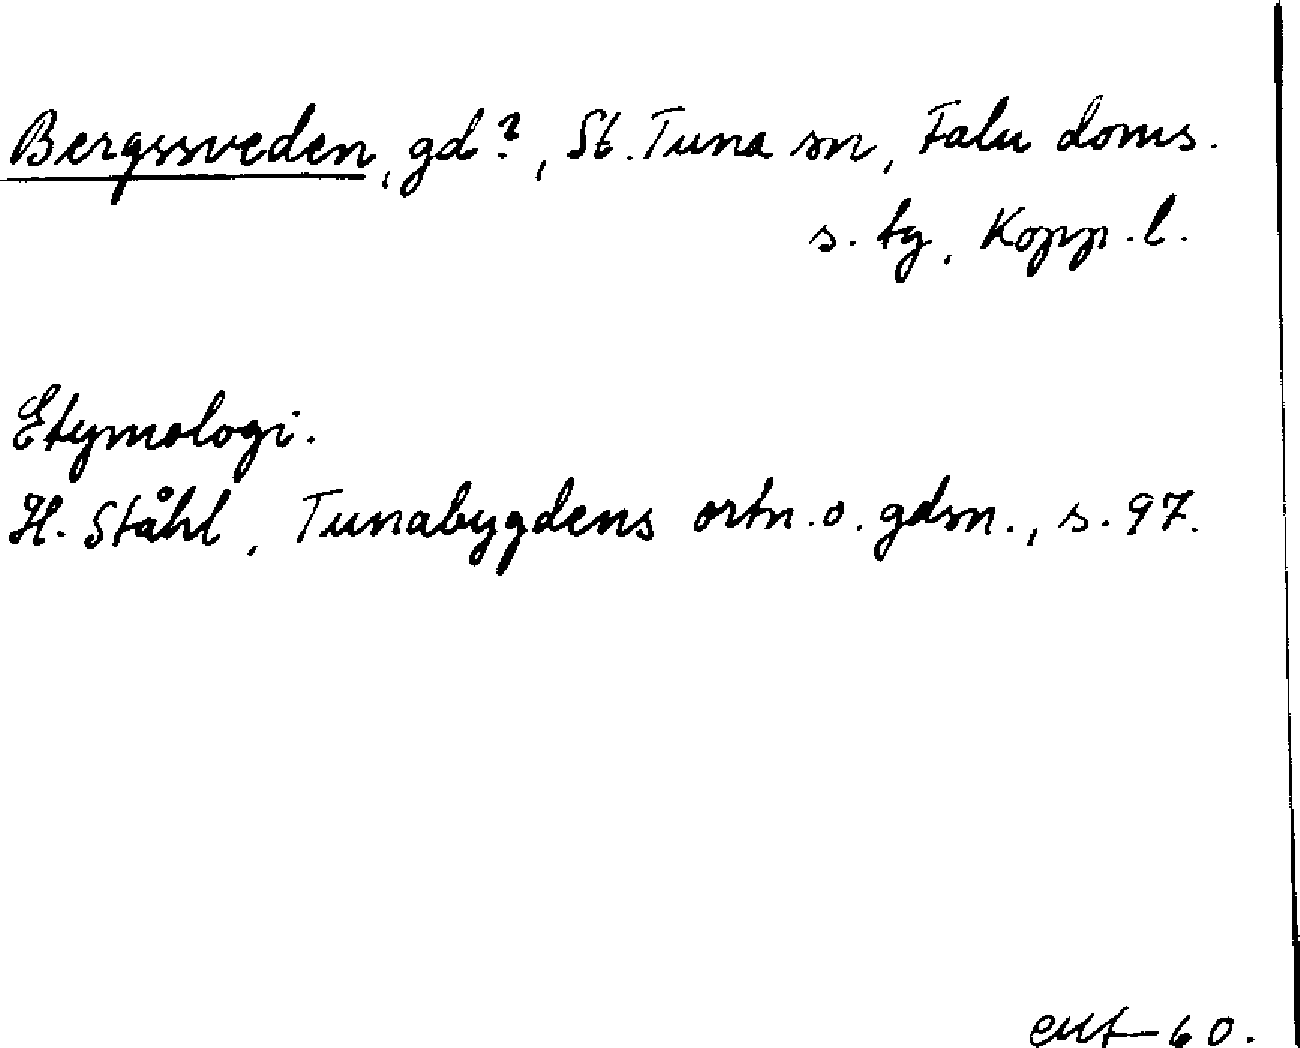 Bergssveden, gd?, St. Tuna sn, Falu doms.
s. tg, Kopp. l.
Etymologi.
H. Ståhl, Tunabygdens ortn. o. gdsn., s. 97.
60.